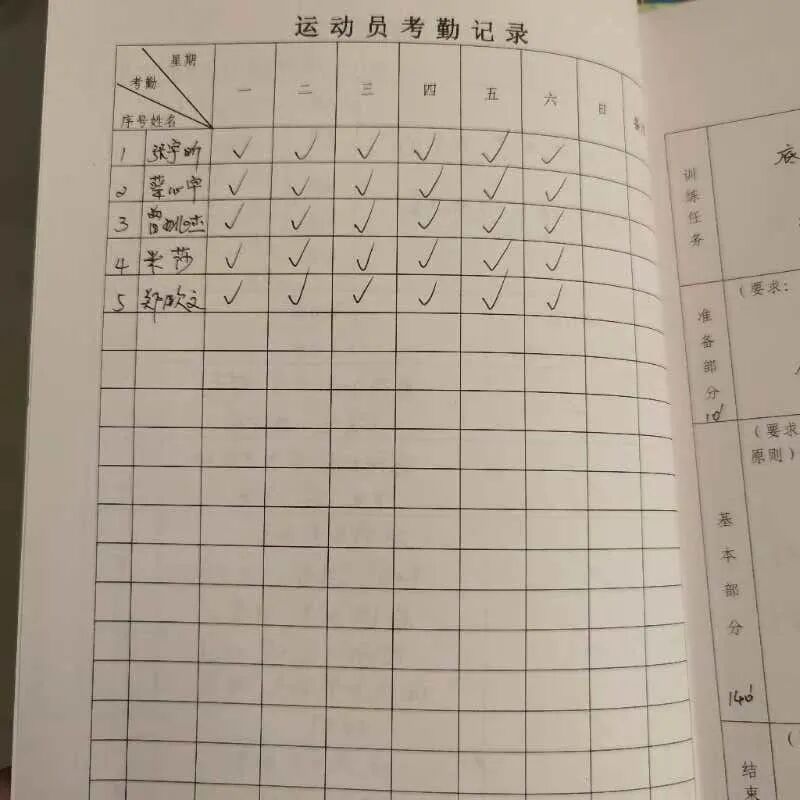 运动员考勤记录
星期
考勤
序号姓名
一 二 三 四 五 六 日
1 张宇昕 ✓ ✓ ✓ ✓ ✓ ✓
2 蔡心宇 ✓ ✓ ✓ ✓ ✓ ✓
3 曾 杰 ✓ ✓ ✓ ✓ ✓ ✓
4 米莎 ✓ ✓ ✓ ✓ ✓ ✓
5 郑欣文 ✓ ✓ ✓ ✓ ✓ ✓
训练任务
准备部分
10'
(要求:
基本部分
140'
(要求
原则)
结束
(